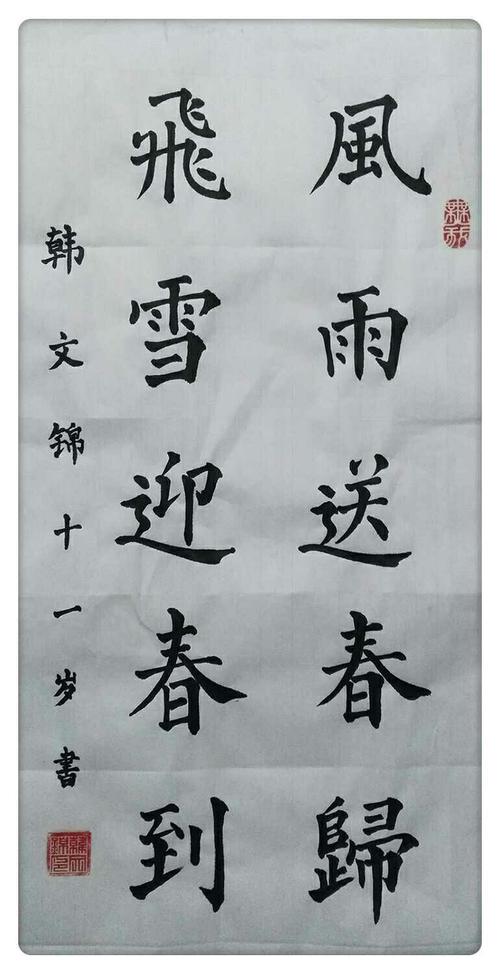 風雨送春歸
飛雪迎春到
韩文锦十一岁書